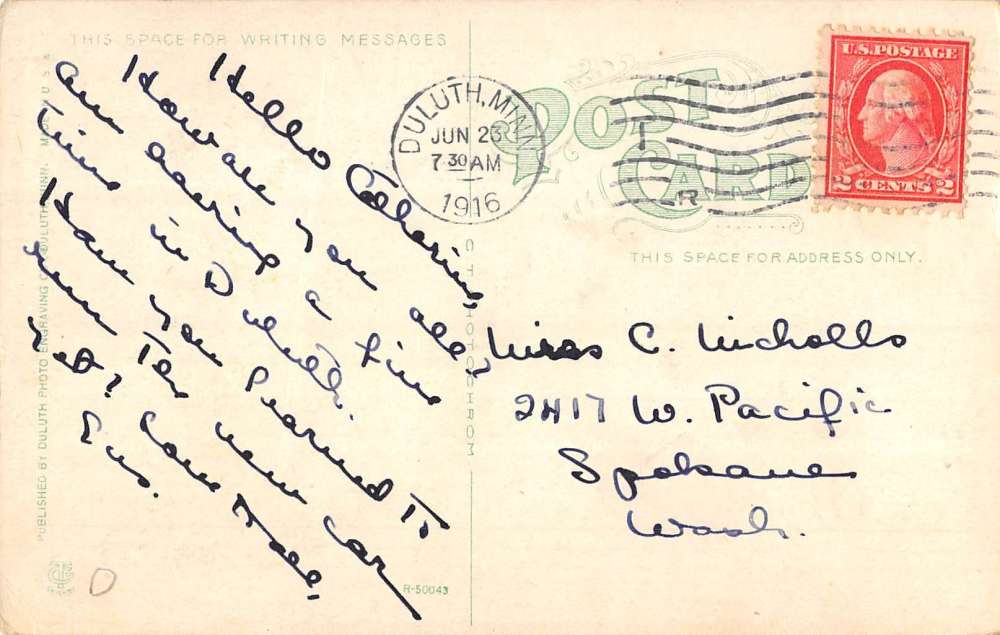 THIS SPACE FOR WRITING MESSAGES
Hello Catherine,
How are you all?
am having a fine
time in Duluth.
Have you learned to
run the new car
yet? Love to all,
Eva.
PUBLISHED BY DULUTH PHOTO ENGRAVING CO. DULUTH, MINN. MADE IN U.S.A.
C.T. PHOTOCHROM
R-50043
DULUTH, MINN.
JUN 23
7 30 AM
1916
POST
CARD
U.S. POSTAGE
2 CENTS 2
THIS SPACE FOR ADDRESS ONLY.
Miss C. Nicholls
2417 W. Pacific
Spokane
Wash.